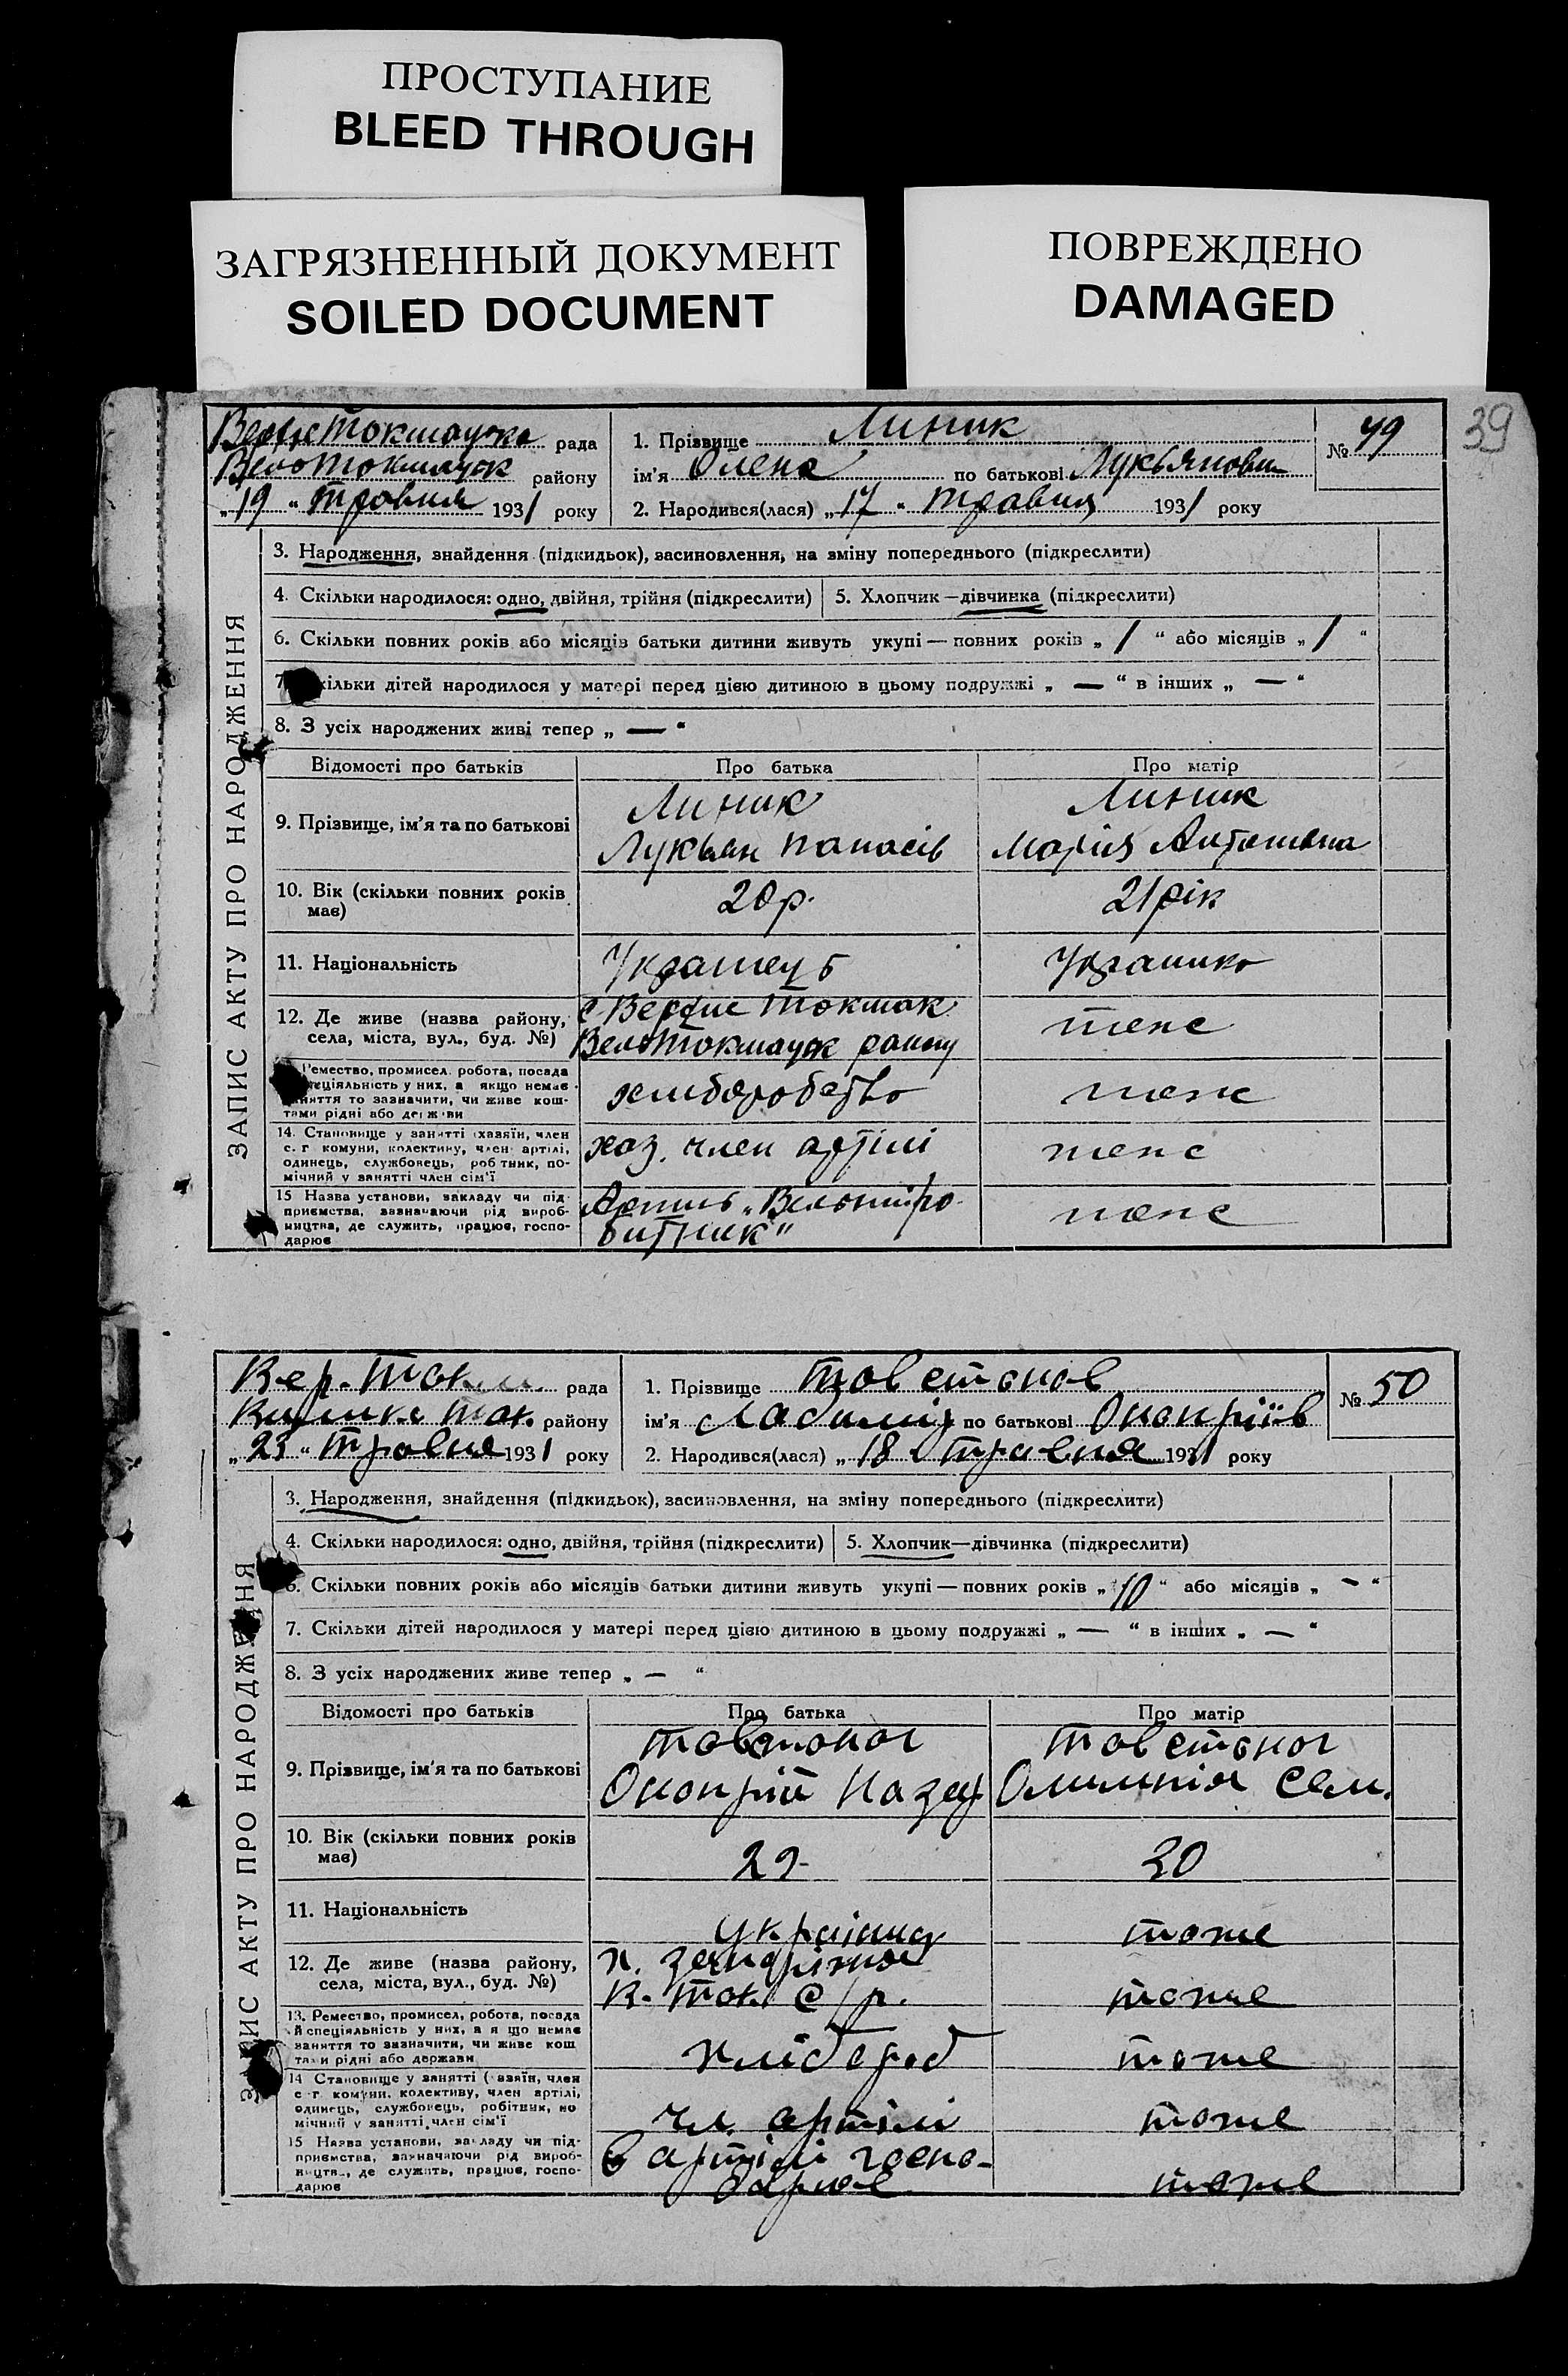 ПРОСТУПАНИЕ
BLEED THROUGH
ЗАГРЯЗНЕННЫЙ ДОКУМЕНТ
SOILED DOCUMENT
ПОВРЕЖДЕНО
DAMAGED
39
рада
району
„19 “ травня 1931 року
1. Прізвище Линик
ім’я Олена по батькові Лукьяновна
2. Народився(лася) „17 “ травня 1931 року
№ 49
ЗАПИС АКТУ ПРО НАРОДЖЕННЯ
3. Народження, знайдення (підкидьок), засиновлення, на зміну попереднього (підкреслити)
4. Скільки народилося: одно, двійня, трійня (підкреслити)
5. Хлопчик — дівчинка (підкреслити)
6. Скільки повних років або місяців батьки дитини живуть укупі — повних років „ / “ або місяців „ / “
7. кільки дітей народилося у матері перед цією дитиною в цьому подружжі „ — “ в інших „ — “
8. З усіх народжених живі тепер „ — “
Відомості про батьків
Про батька
Про матір
9. Прізвище, ім’я та по батькові
Линик
Лукьян Панасів
Линик
Марія Антоновна
10. Вік (скільки повних років
має)
20 р.
21 рік
11. Національність
Украінець
Украинка
12. Де живе (назва району,
села, міста, вул., буд. №)
с Верхне Токмак
району
тоже
Ремество, промисел. робота, посада
спеціяльність у них, а якщо немає
заняття то зазначити, чи живе кош-
тами рідні або держави
хлиборобство
тоже
14. Становище у занятті (хазяїн, член
с. г комуни, колективу, член артілі,
одинець, службовець, робітник, по-
мічний у занятті член сім’ї
хаз. член артілі
тоже
15 Назва установи, закладу чи під-
приємства, зазначаючи рід вироб-
ництва, де служить, працює, госпо-
дарює
Артиль „Вільний ро
битник“
тоже
Вер. Токм. рада
Ток. району
„23 “ травня 1931 року
1. Прізвище Товстоног
ім’я по батькові Оноприїв
2. Народився(лася) „18 “ травня 1931 року
№ 50
ЗАПИС АКТУ ПРО НАРОДЖЕННЯ
3. Народження, знайдення (підкидьок), засиновлення, на зміну попереднього (підкреслити)
4. Скільки народилося: одно, двійня, трійня (підкреслити)
5. Хлопчик—дівчинка (підкреслити)
6. Скільки повних років або місяців батьки дитини живуть укупі — повних років „ 10 “ або місяців „ — “
7. Скільки дітей народилося у матері перед цією дитиною в цьому подружжі „ — “ в інших „ — “
8. З усіх народжених живе тепер „ — “
Відомості про батьків
Про батька
Про матір
9. Прізвище, ім’я та по батькові
Товстоног
Оноприй Назар
Товстоног
Олимпія Сем.
10. Вік (скільки повних років
має)
29
30
11. Національність
украінец
тоже
12. Де живе (назва району,
села, міста, вул., буд. №)
В. Ток. с/р.
тоже
13. Ремество, промисел, робота, посада
й спеціяльність у них, а якщо немає
заняття то зазначити, чи живе кош
тами рідні або держави
хлібороб
тоже
14 Становище у занятті (хазяїн, член
с г комуни, колективу, член артілі,
одинець, службовець, робітник, по
мічний у занятті, член сім’ї
чл. артілі
тоже
15 Назва установи, закладу чи під-
приємства, зазначаючи рід вироб-
ництва, де служить, працює, госпо-
дарює
в артілі госпо-
дарює
тоже